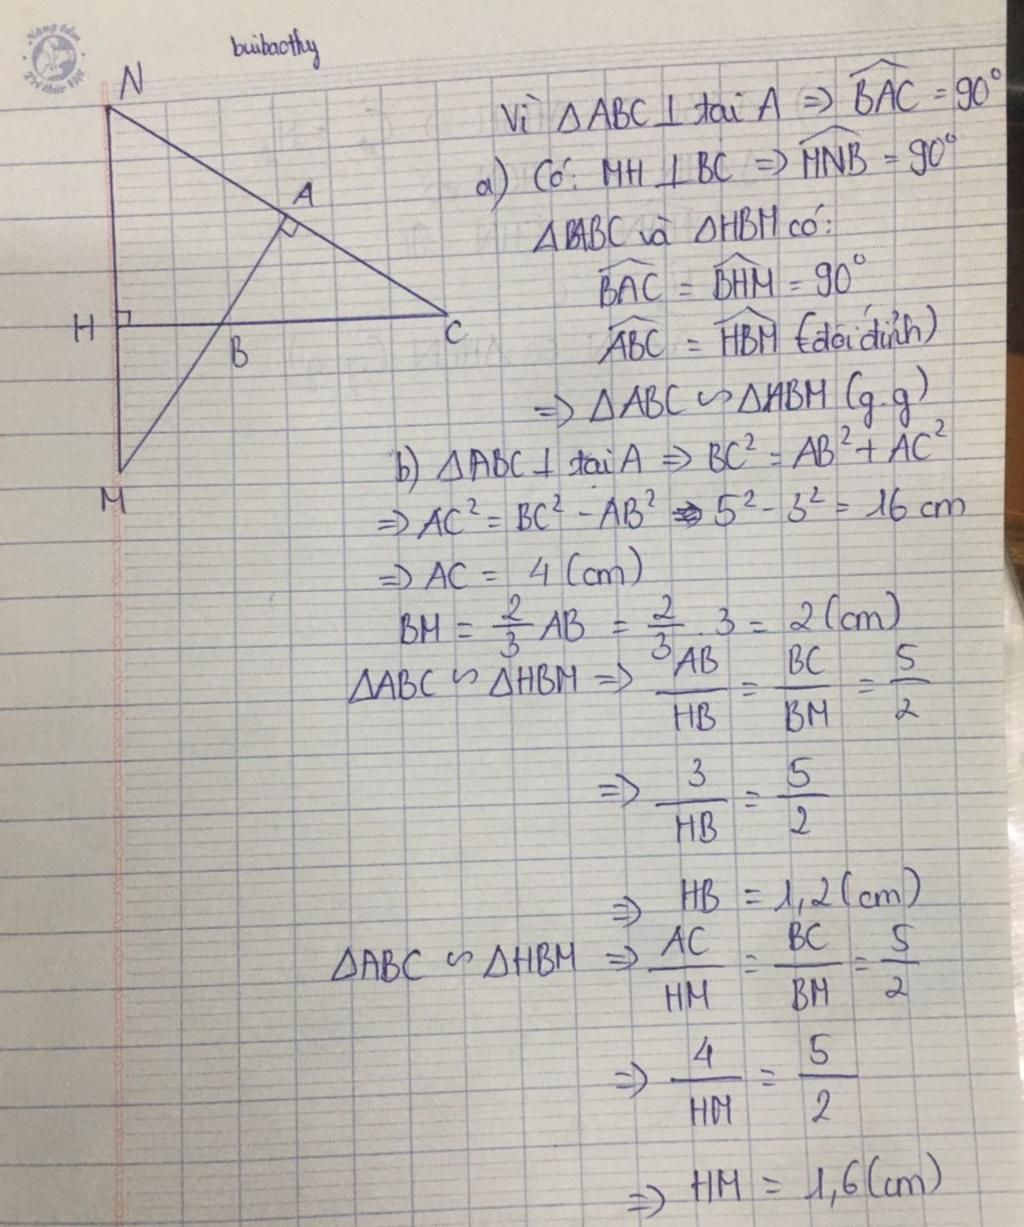 Nâng tầm
Tri thức Việt
buibaothy
N
A
H
B
C
M
Vì ΔABC ⊥ tại A => BAC = 90°
a) Có: MH ⊥ BC => MNB = 90°
ΔBABC và ΔHBM có:
BAC = BHM = 90°
ABC = HBM (đối đỉnh)
=> ΔABC ∽ ΔHBM (g.g)
b) ΔABC ⊥ tại A => BC² = AB² + AC²
=> AC² = BC² - AB² => 5² - 3² = 16 cm
=> AC = 4 (cm)
BM = 2/3 AB = 2/3 . 3 = 2 (cm)
ΔABC ∽ ΔHBM => AB/HB = BC/BM = 5/2
=> 3/HB = 5/2
=> HB = 1,2 (cm)
ΔABC ∽ ΔHBM => AC/HM = BC/BM = 5/2
=> 4/HM = 5/2
=> HM = 1,6 (cm)